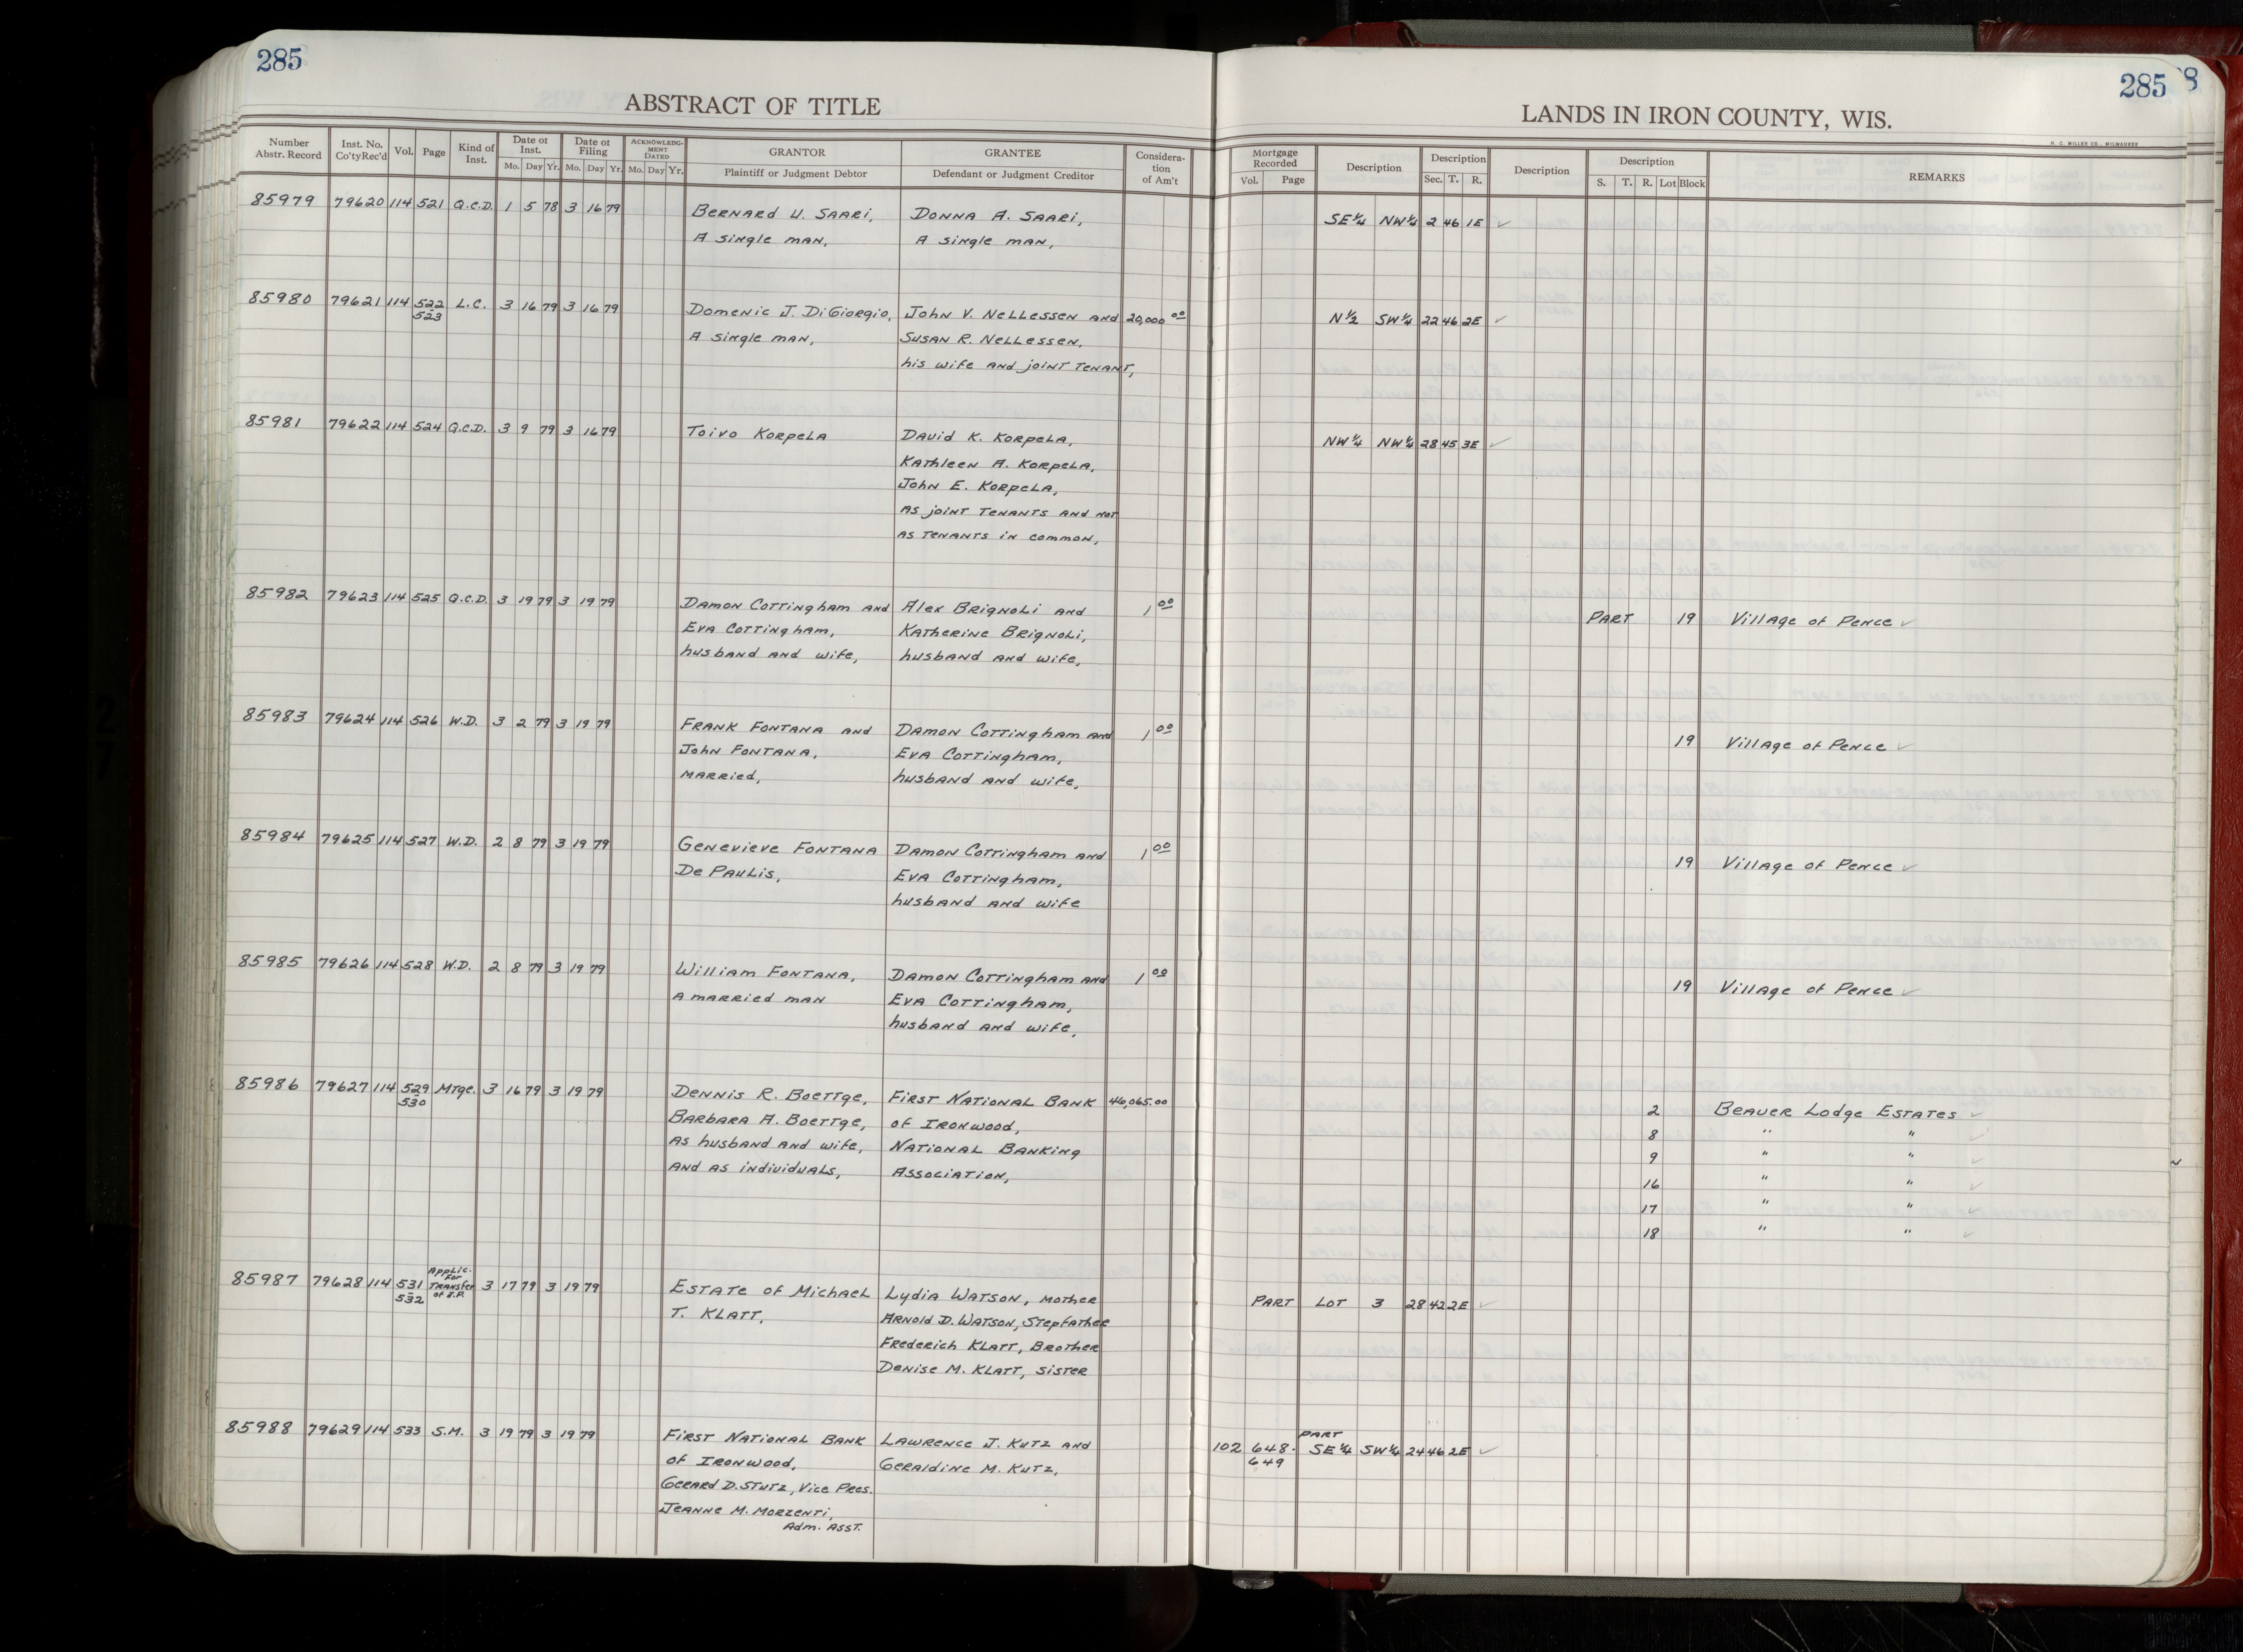 285
285
ABSTRACT OF TITLE
LANDS IN IRON COUNTY, WIS.
H. C. MILLER CO., MILWAUKEE
Number Abstr. Record | Inst. No. Co'ty Rec'd | Vol. | Page | Kind of Inst. | Date of Inst. Mo. Day Yr. | Date of Filing Mo. Day Yr. | ACKNOWLEDGMENT DATED Mo. Day Yr. | GRANTOR Plaintiff or Judgment Debtor | GRANTEE Defendant or Judgment Creditor | Consideration of Am't | Mortgage Recorded Vol. Page | Description | Description Sec. T. R. | Description | Description S. T. R. Lot Block | REMARKS
85979 79620 114 521 Q.C.D. 1 5 78 3 16 79 Bernard U. Saari, Donna A. Saari, SE¼ NW¼ 2 46 1E ✓
A single man, A single man,
85980 79621 114 522 L.C. 3 16 79 3 16 79 Domenic J. DiGiorgio, John V. Nellessen and 20,000.00 N½ SW¼ 22 46 2E ✓
523 A single man, Susan R. Nellessen,
his wife and joint tenant,
85981 79622 114 524 Q.C.D. 3 9 79 3 16 79 Toivo Korpela David K. Korpela, NW¼ NW¼ 28 45 3E ✓
Kathleen A. Korpela,
John E. Korpela,
as joint tenants and not
as tenants in common,
85982 79623 114 525 Q.C.D. 3 19 79 3 19 79 Damon Cottingham and Alex Brignoli and 1.00 PART 19 Village of Pence ✓
Eva Cottingham, Katherine Brignoli,
husband and wife, husband and wife,
85983 79624 114 526 W.D. 3 2 79 3 19 79 Frank Fontana and Damon Cottingham and 1.00 19 Village of Pence ✓
John Fontana, Eva Cottingham,
married, husband and wife,
85984 79625 114 527 W.D. 2 8 79 3 19 79 Genevieve Fontana Damon Cottingham and 1.00 19 Village of Pence ✓
De Paulis, Eva Cottingham,
husband and wife
85985 79626 114 528 W.D. 2 8 79 3 19 79 William Fontana, Damon Cottingham and 1.00 19 Village of Pence ✓
A married man Eva Cottingham,
husband and wife,
85986 79627 114 529 Mtge. 3 16 79 3 19 79 Dennis R. Boettge, First National Bank 46,065.00 2 Beaver Lodge Estates ✓
530 Barbara A. Boettge, of Ironwood, 8 " " ✓
as husband and wife, National Banking 9 " " ✓
and as individuals, Association, 16 " " ✓
17 " " ✓
18 " " ✓
85987 79628 114 531-532 Applic. for Transfer of I.P. 3 17 79 3 19 79 Estate of Michael Lydia Watson, Mother PART LOT 3 28 42 2E ✓
T. Klatt, Arnold D. Watson, Stepfather
Frederich Klatt, Brother
Denise M. Klatt, Sister
85988 79629 114 533 S.M. 3 19 79 3 19 79 First National Bank Lawrence J. Kutz and 102 648-649 PART SE¼ SW¼ 24 46 2E ✓
of Ironwood, Geraldine M. Kutz,
Gerard D. Stutz, Vice Pres.
Jeanne M. Morzenti,
Adm. Asst.